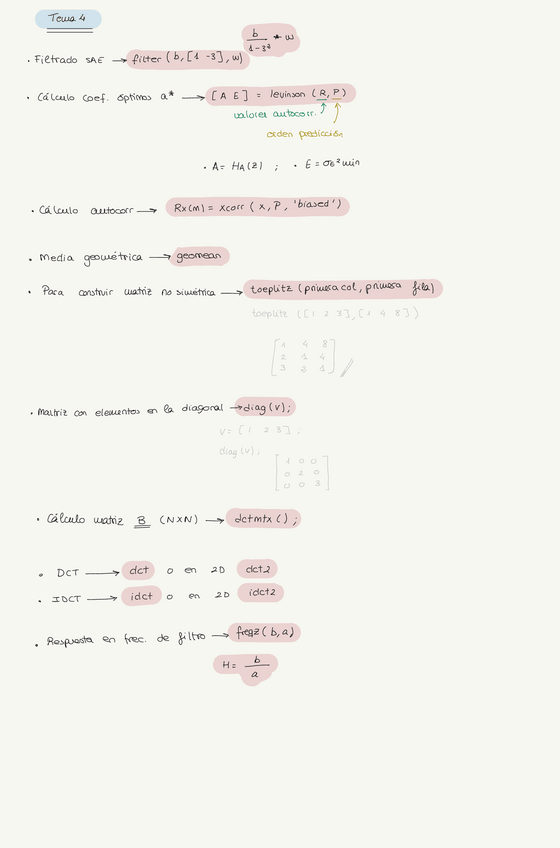 Tema 4
b
1-3z * w
· Filtrado SAE → filter (b, [1 -3], w)
· Cálculo coef. óptimos a* → [A E] = levinson (R, P)
valores autocorr.
orden predicción
· A = HA(z) ; · E = σE² min
· Cálculo autocorr → Rx(m) = xcorr (x, P, 'biased')
· Media geométrica → geomean
· Para construir matriz no simétrica → toeplitz (primera col, primera fila)
toeplitz ([1 2 3], [1 4 8])
1 4 8
2 1 4
3 2 1
· Matriz con elementos en la diagonal → diag (v);
v = [1 2 3];
diag (v);
1 0 0
0 2 0
0 0 3
· Cálculo matriz B (NxN) → dctmtx ();
· DCT → dct o en 2D dct2
· IDCT → idct o en 2D idct2
· Respuesta en frec. de filtro → freqz (b, a)
H = b
a